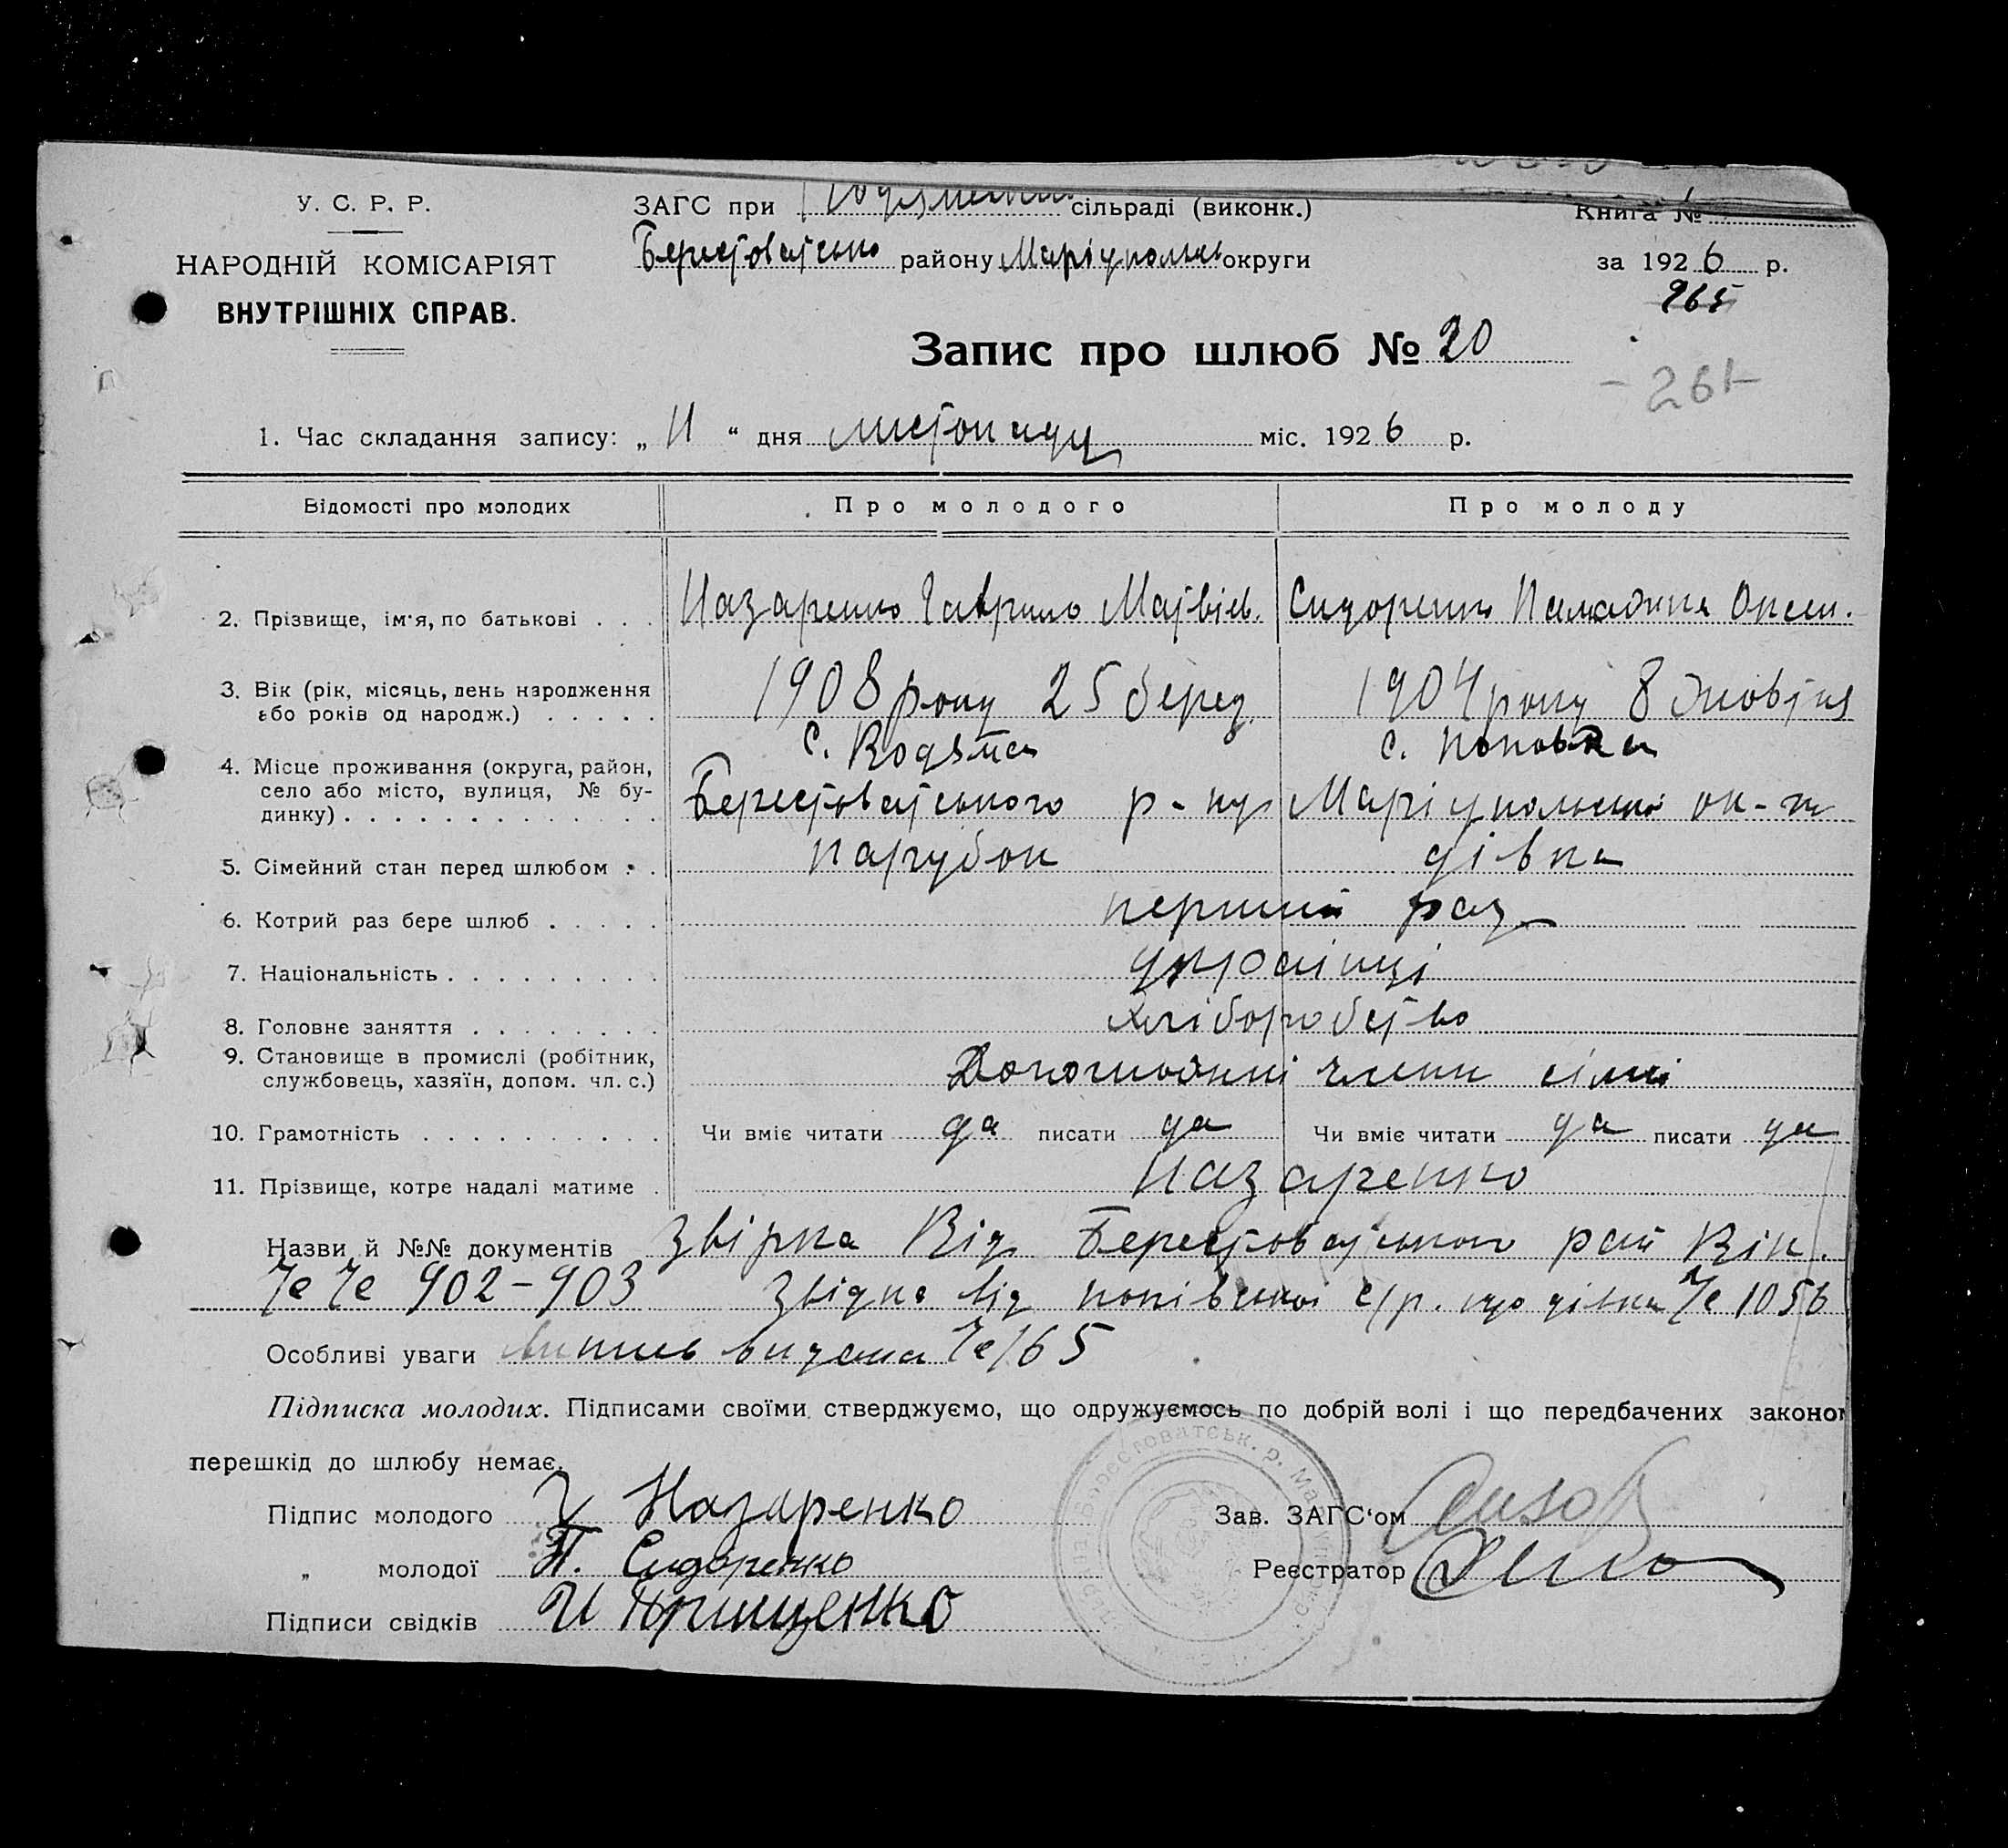 У. С. Р. Р.
НАРОДНІЙ КОМІСАРІЯТ
ВНУТРІШНІХ СПРАВ.
ЗАГС при сільраді (виконк.)
Берестоватсько району Маріупольс округи
Книга №
за 1926 р.
265
Запис про шлюб № 20
- 261-
1. Час складання запису: „ 11 “ дня листопаду міс. 1926 р.
Відомості про молодих Про молодого Про молоду
2. Прізвище, ім'я, по батькові . . . Назаренко Гаврило Матвієв. Сидоренко
3. Вік (рік, місяць, день народження або років од народж.) . . . . . 1908 року 25 берез. 1904 року 8 жовтня
с. Водяна с. Поповка
4. Місце проживання (округа, район, село або місто, вулиця, № будинку) . . . Берестоватського р-ну Маріупольської ок-ги
5. Сімейний стан перед шлюбом . . парубок дівка
6. Котрий раз бере шлюб . . . . . перший раз
7. Національність . . . . . . . . . українці
8. Головне заняття . . . . . . . . хліборобство
9. Становище в промислі (робітник, службовець, хазяїн, допом. чл. с.) Допоможні члени сімї
10. Грамотність . . . . . . . . . . Чи вміє читати да писати да Чи вміє читати да писати да
11. Прізвище, котре надалі матиме . Назаренко
Назви й №№ документів Звірка Від Берестоватського рай Вік.
№ № 902-903 Звідка від попівської с/р. що дівка № 1056
Особливі уваги випись видана № 165
Підписка молодих. Підписами своїми стверджуємо, що одружуємось по добрій волі і що передбачених законом
перешкід до шлюбу немає.
Підпис молодого Г Назаренко Зав. ЗАГС'ом
„ молодої П. Сидоренко Реєстратор
Підписи свідків И Прищенко